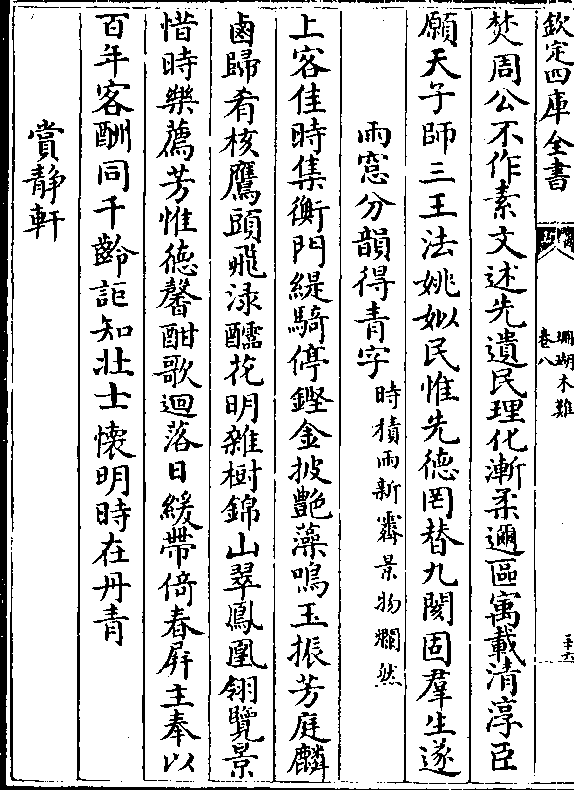 欽定四庫全書
珊瑚木難
卷八
三十六
焚周公不作素文述先遺民理化漸柔邇區寓載清淳臣
願天子師三王法姚姒民惟先德罔替九閡固羣生遂
雨窓分韻得青字時積雨新霽景物爛然
上客佳時集衡門緹騎停鏗金披艷藻鳴玉振芳庭麟
鹵歸肴核鷹頭飛淥醽花明雜樹錦山翠鳳凰翎覽景
惜時樂薦芳惟德馨酣歌迴落日緩帶倚春屏主奉以
百年客酬同千齡詎知壯士懷明時在丹青
賞静軒